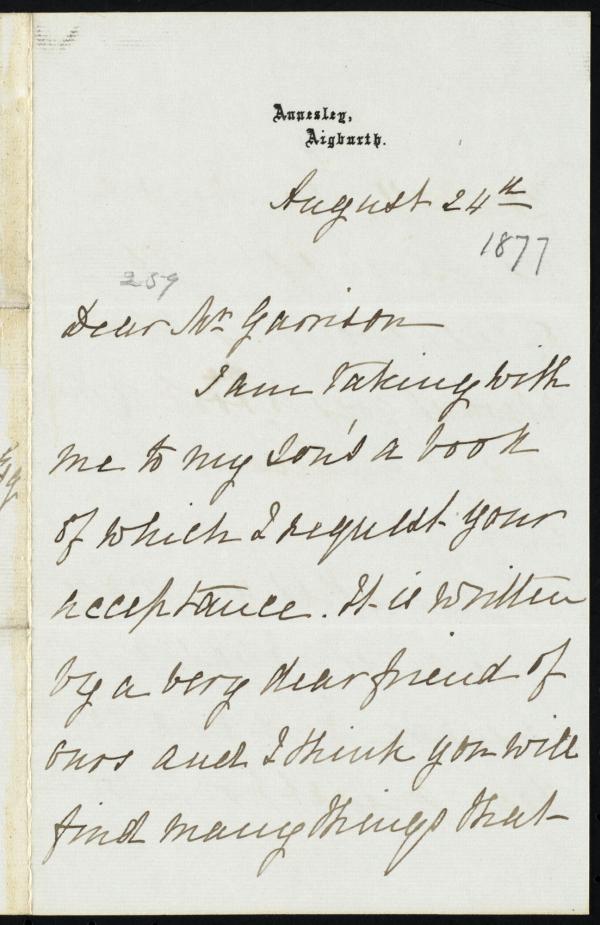 Annesley,
Aigburth.
August 24th
1877
259
Dear Mr Garrison
I am taking with
me to my son's a book
of which I request your
acceptance. It is written
by a very dear friend of
ours and I think you will
find many things that